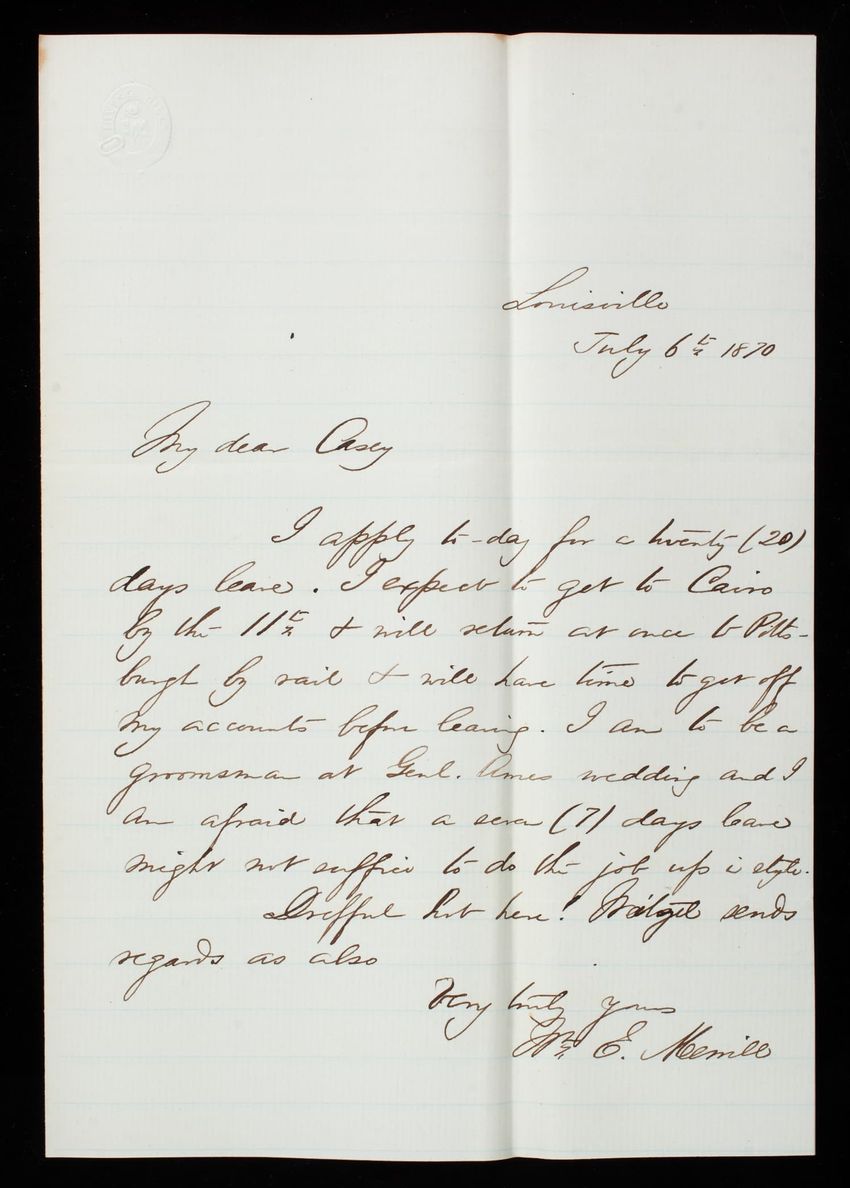 Louisville
July 6th 1870
My dear Casey
I apply to-day for a twenty (20)
days leave. I expect to get to Cairo
by the 11th & will return at once to Pitts-
burgh by rail & will have time to get off
my accounts before leaving. I am to be a
groomsman at Genl. Ames wedding and I
am afraid that a seven (7) days leave
might not suffice to do the job up in style.
Drefful hot here! Weitzel sends
regards as also
Very truly yours
Wm E. Merrill